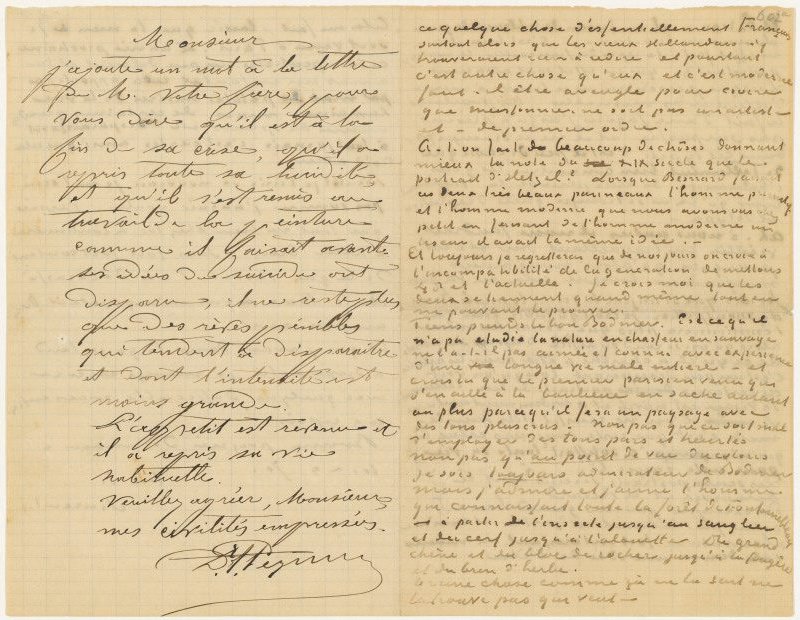 Monsieur
j'ajoute un mot à la lettre
de M. votre frère, pour
vous dire qu'il est à la
fin de sa crise, qu'il a
repris toute sa lucidité,
et qu'il s'est remis au
travail de la peinture
comme il faisait avant.
ses idées de suicide ont
disparu, il ne reste plus
que des rêves pénibles
qui tendent à disparaitre
et dont l'intensité est
moins grande.
L'appetit est revenu et
il a repris sa vie
habituelle.
Veuillez agréer, Monsieur,
mes civilités empressées.
Dr Peyron
ce quelque chose d'essentiellement Français
surtout alors que les vieux Hollandais n'y
trouveraient rien à redire et pourtant
c'est autre chose qu'eux et c'est moderne
faut il être aveugle pour croire
que Meissonier ne soit pas un artist-
et - de premier ordre.
A-t-on fait de beaucoup de choses donnant
mieux la note du XIX siecle que le
portrait d'Hetzel? Lorsque Besnard faisait
ces deux très beaux panneaux l'homme
et l'homme moderne que nous avons vus
petit en faisant de l'homme moderne un
liseur il avait la même idée. —
Et toujours je regretterai que de nos jours on croie à
l'incompatibilité de la generation de mettons
48 et l'actuelle. Je crois moi que les
deux se tiennent quand même tout en
ne pouvant le prouver.
Tiens prends le bon Bodmer. Est ce qu'il
n'a pas etudié la nature en chasseur en sauvage
ne l'a-t-il pas aimée et connue avec experience
d'une longue vie male entiere - et
crois tu que le premier parisien venu qui
s'en aille à la banlieue en sache autant
ou plus parcequ'il fera un paysage avec
des tons plus crus. Non pas que ce soit mal
d'employer des tons purs et heurtés
non pas qu'au point de vue du coloris
je sois toujours admirateur de Bodmer
mais j'admire et j'aime l'homme
qui connaissait toute la forêt de Fontainebleau
— à partir de l'insecte jusqu'au sanglier
et du cerf jusqu'à l'alouette. Du grand
chêne et du bloc de rocher jusqu'à la fougère
et du brin d'herbe.
Or une chose comme ça ne la sent ne
la trouve pas qui veut —